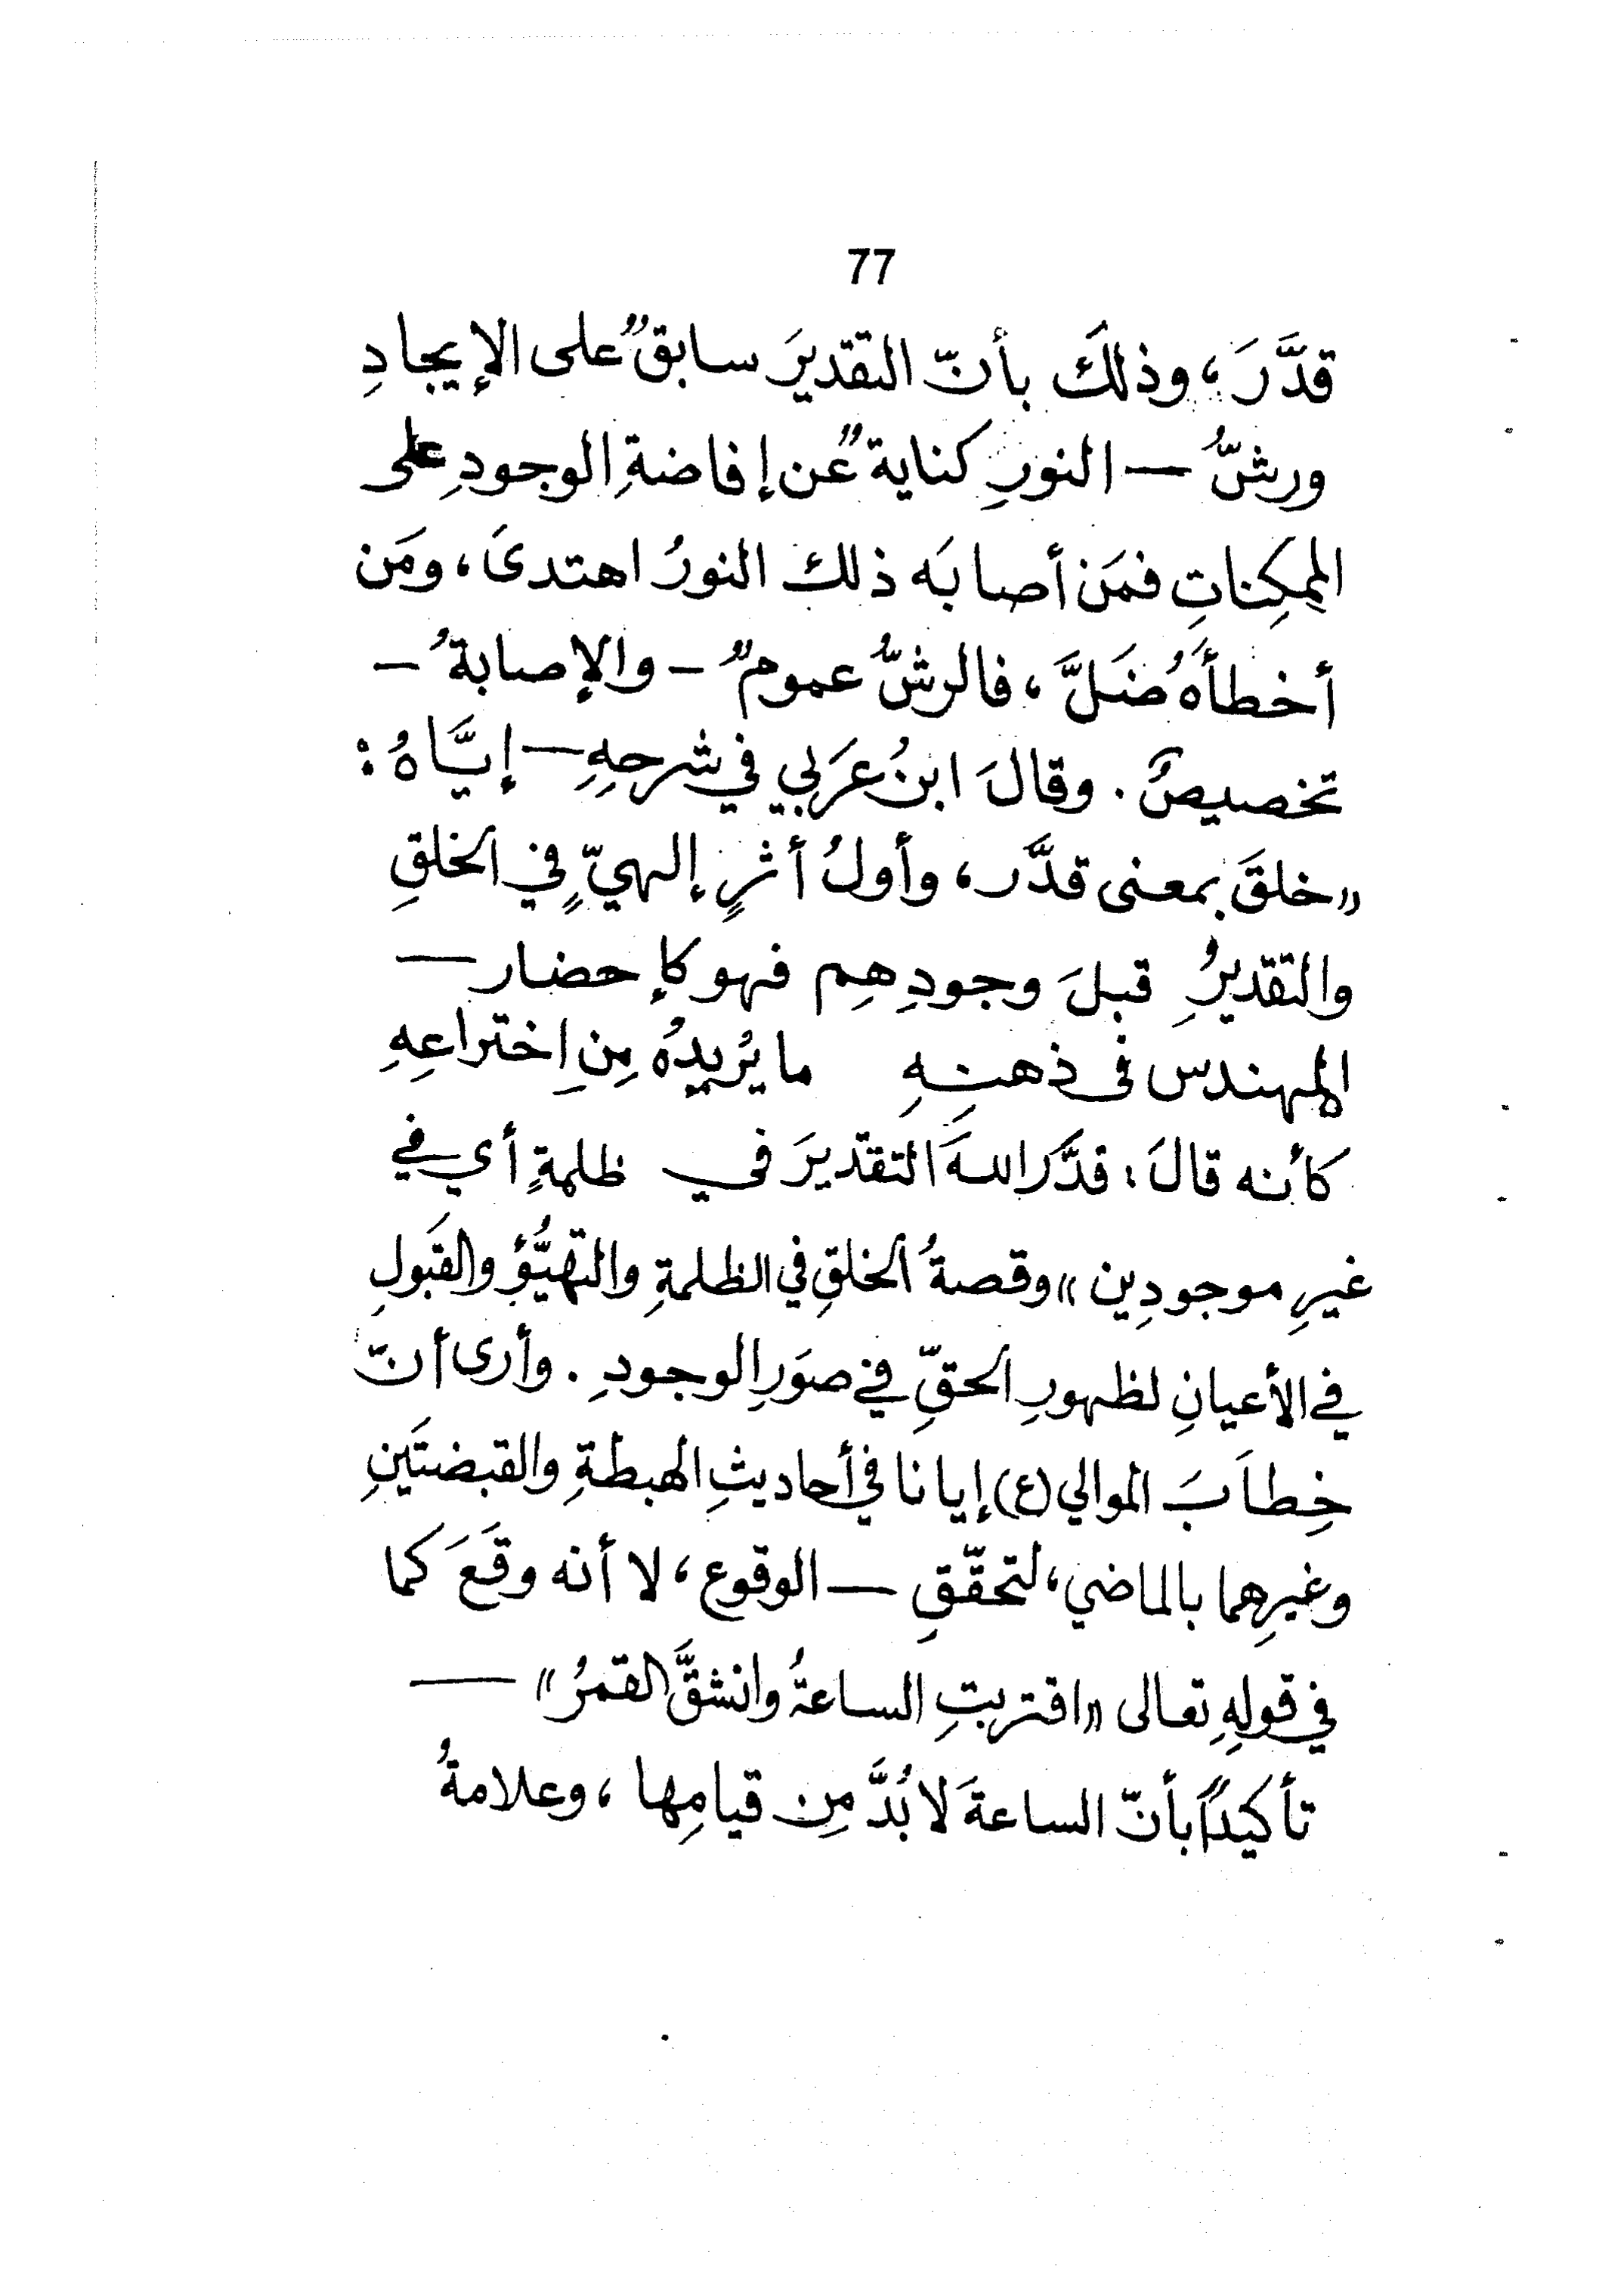 77
قدَّرَ، وذلكَ بأنّ التقديرَ سابقٌ على الإيجادِ
ورشُّ — النورِ كنايةٌ عن إفاضةِ الوجودِ على
الممكِناتِ فمَن أصابَه ذلك النورُ اهتدىَ، ومَن
أخطأَهُ ضَلَّ، فالرشُّ عمومٌ - والإصابةُ -
تخصيصٌ. وقالَ ابنُ عَرَبي في شرحِهِ — إيَّاهُ:
«خلقَ بمعنى قدَّر، وأولُ أثرٍ إلهيٍّ في الخلقِ
والتقديرُ قبلَ وجودِهِم فهو كإحضار —
المهندس في ذهنِهِ ما يُريدُه مِن اِختراعِهِ
كأنه قالَ: قدَّرَ اللهَ التقديرَ في ظلمةٍ أي في
غيرِ موجودِين» وقصةُ الخلقِ في الظلمةِ والتهيُّؤِ والقَبولِ
في الأعيانِ لظهورِ الحقِّ في صوَرِ الوجودِ. وأرى أنّ
خِطاَبَ الموالي (ع) إيانا في أحاديثِ الهبطةِ والقبضتَينِ
وغيرِهما بالماضي، لتحقّقِ — الوقوع، لا أنه وقَعَ كما
في قولِهِ تعالى «اقتربتِ الساعةُ وانشقَّ القمرُ» —
تأكيداً بأنّ الساعةَ لا بُدَّ مِن قيامِها، وعلامةُ